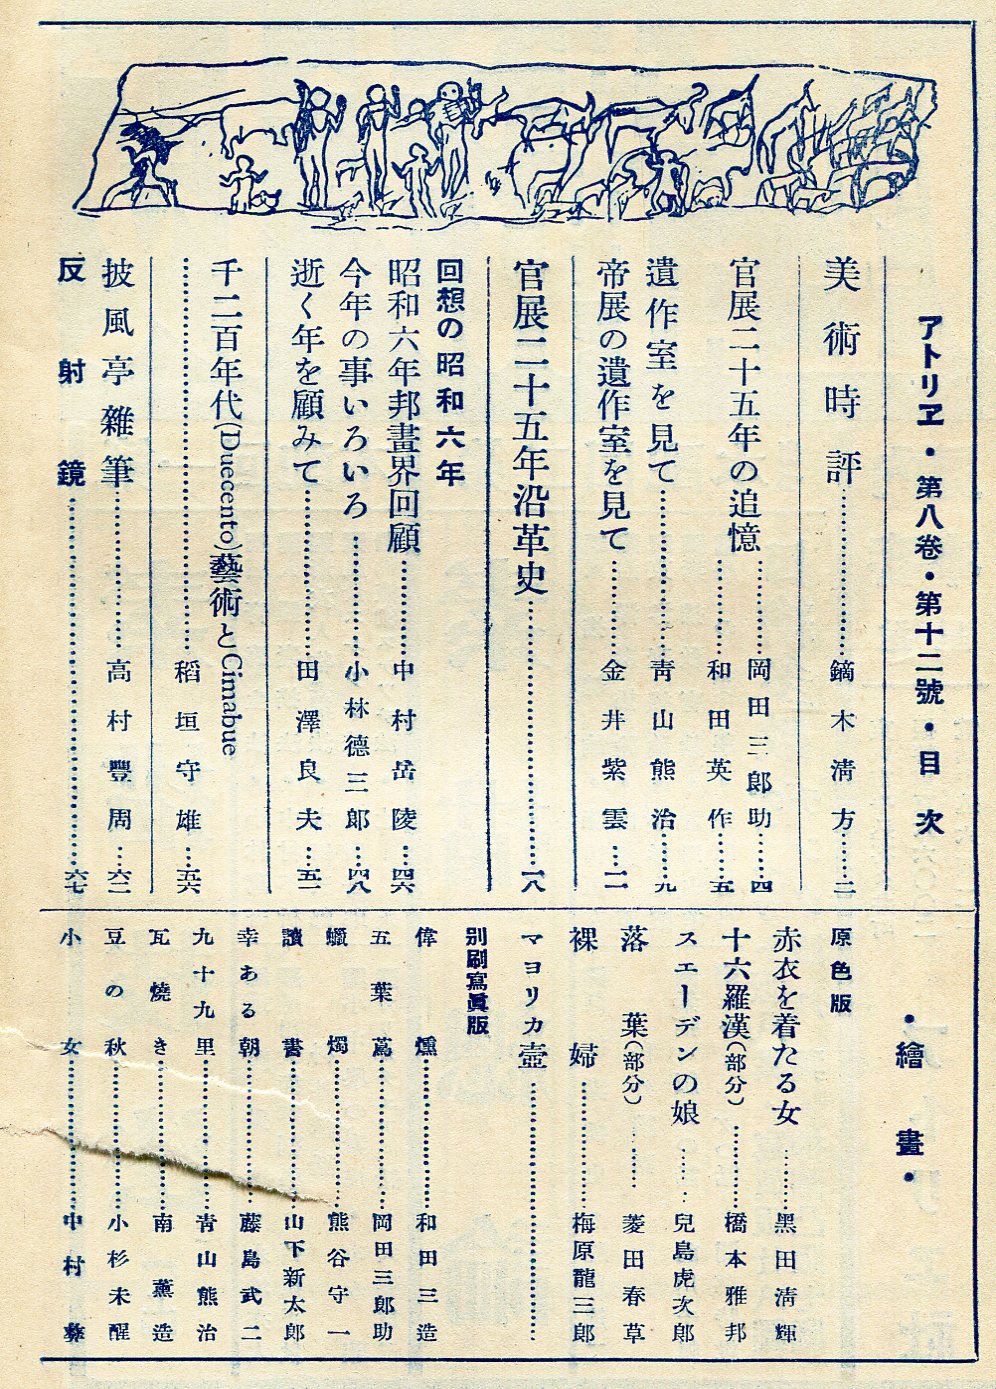 アトリヱ・第八卷・第十二號・目次
美術時評……鏑木淸方……二
官展二十五年の追憶……岡田三郎助……四
和田英作……五
遺作室を見て……靑山熊治……九
帝展の遺作室を見て……金井紫雲……一二
官展二十五年沿革史……一八
回想の昭和六年
昭和六年邦畫界回顧……中村岳陵……四六
今年の事いろいろ……小林德三郎……四八
逝く年を顧みて……田澤良夫……五一
千二百年代(Duecento)藝術とCimabue
……稻垣守雄……五六
披風亭雜筆……高村豐周……六二
反射鏡……六七
・繪畫・
原色版
赤衣を着たる女……黑田淸輝
十六羅漢(部分)……橋本雅邦
スエーデンの娘……兒島虎次郎
落葉(部分)……菱田春草
裸婦……梅原龍三郎
マヨリカ壺……
別刷寫眞版
偉燻……和田三造
五葉蔦……岡田三郎助
蠟燭……熊谷守一
讀書……山下新太郎
幸ある朝……藤島武二
九十九里……靑山熊治
瓦燒き……南薰造
豆の秋……小杉未醒
小女……中村彝